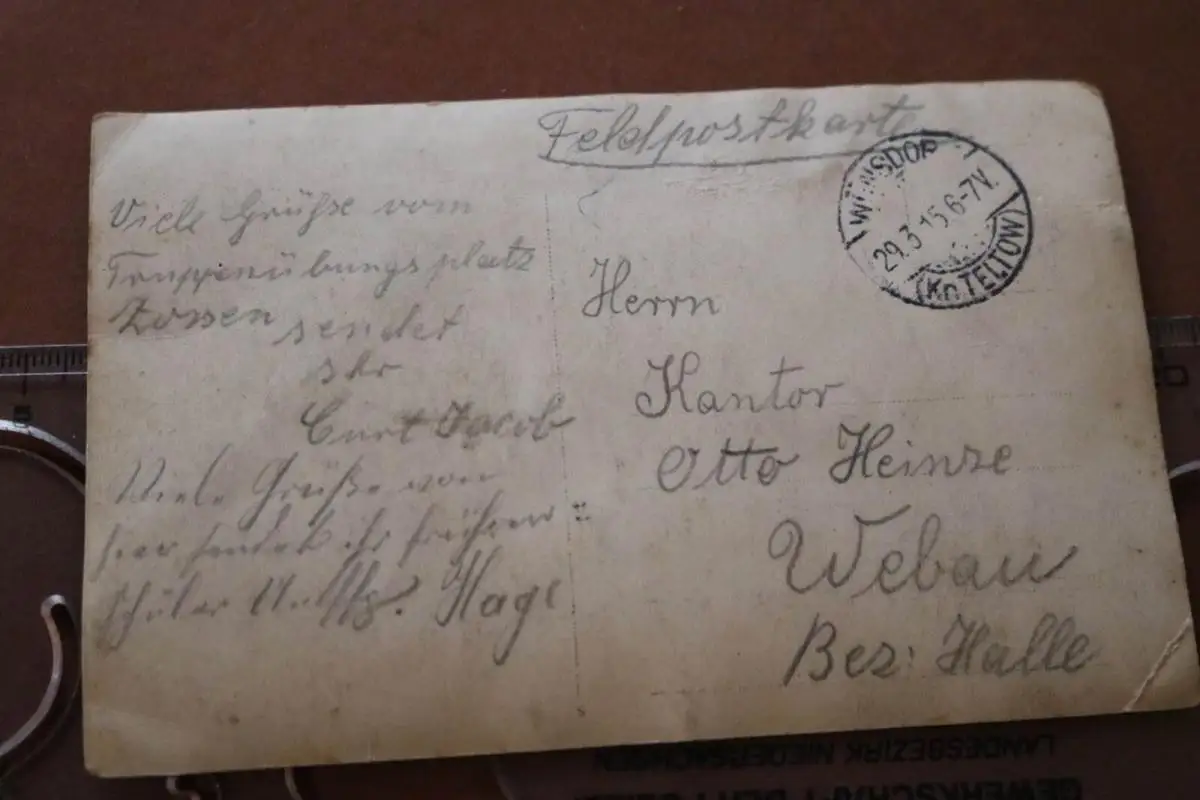 Feldpostkarte
WÜNSDORF
29.3.15.6-7V.
(Kr. TELTOW)
Viele Grüße vom
Truppenübungsplatz
Zossen sendet
Ihr
Curt Jacob
Viele Grüße von
hier sendet ihr früherer
Schüler Uffz. Hage
Herrn
Kantor
Otto Heinze
Webau
Bez: Halle
5
LANDESBEZIRK NIEDERSACHSEN
GEWERKSCHAFT DER